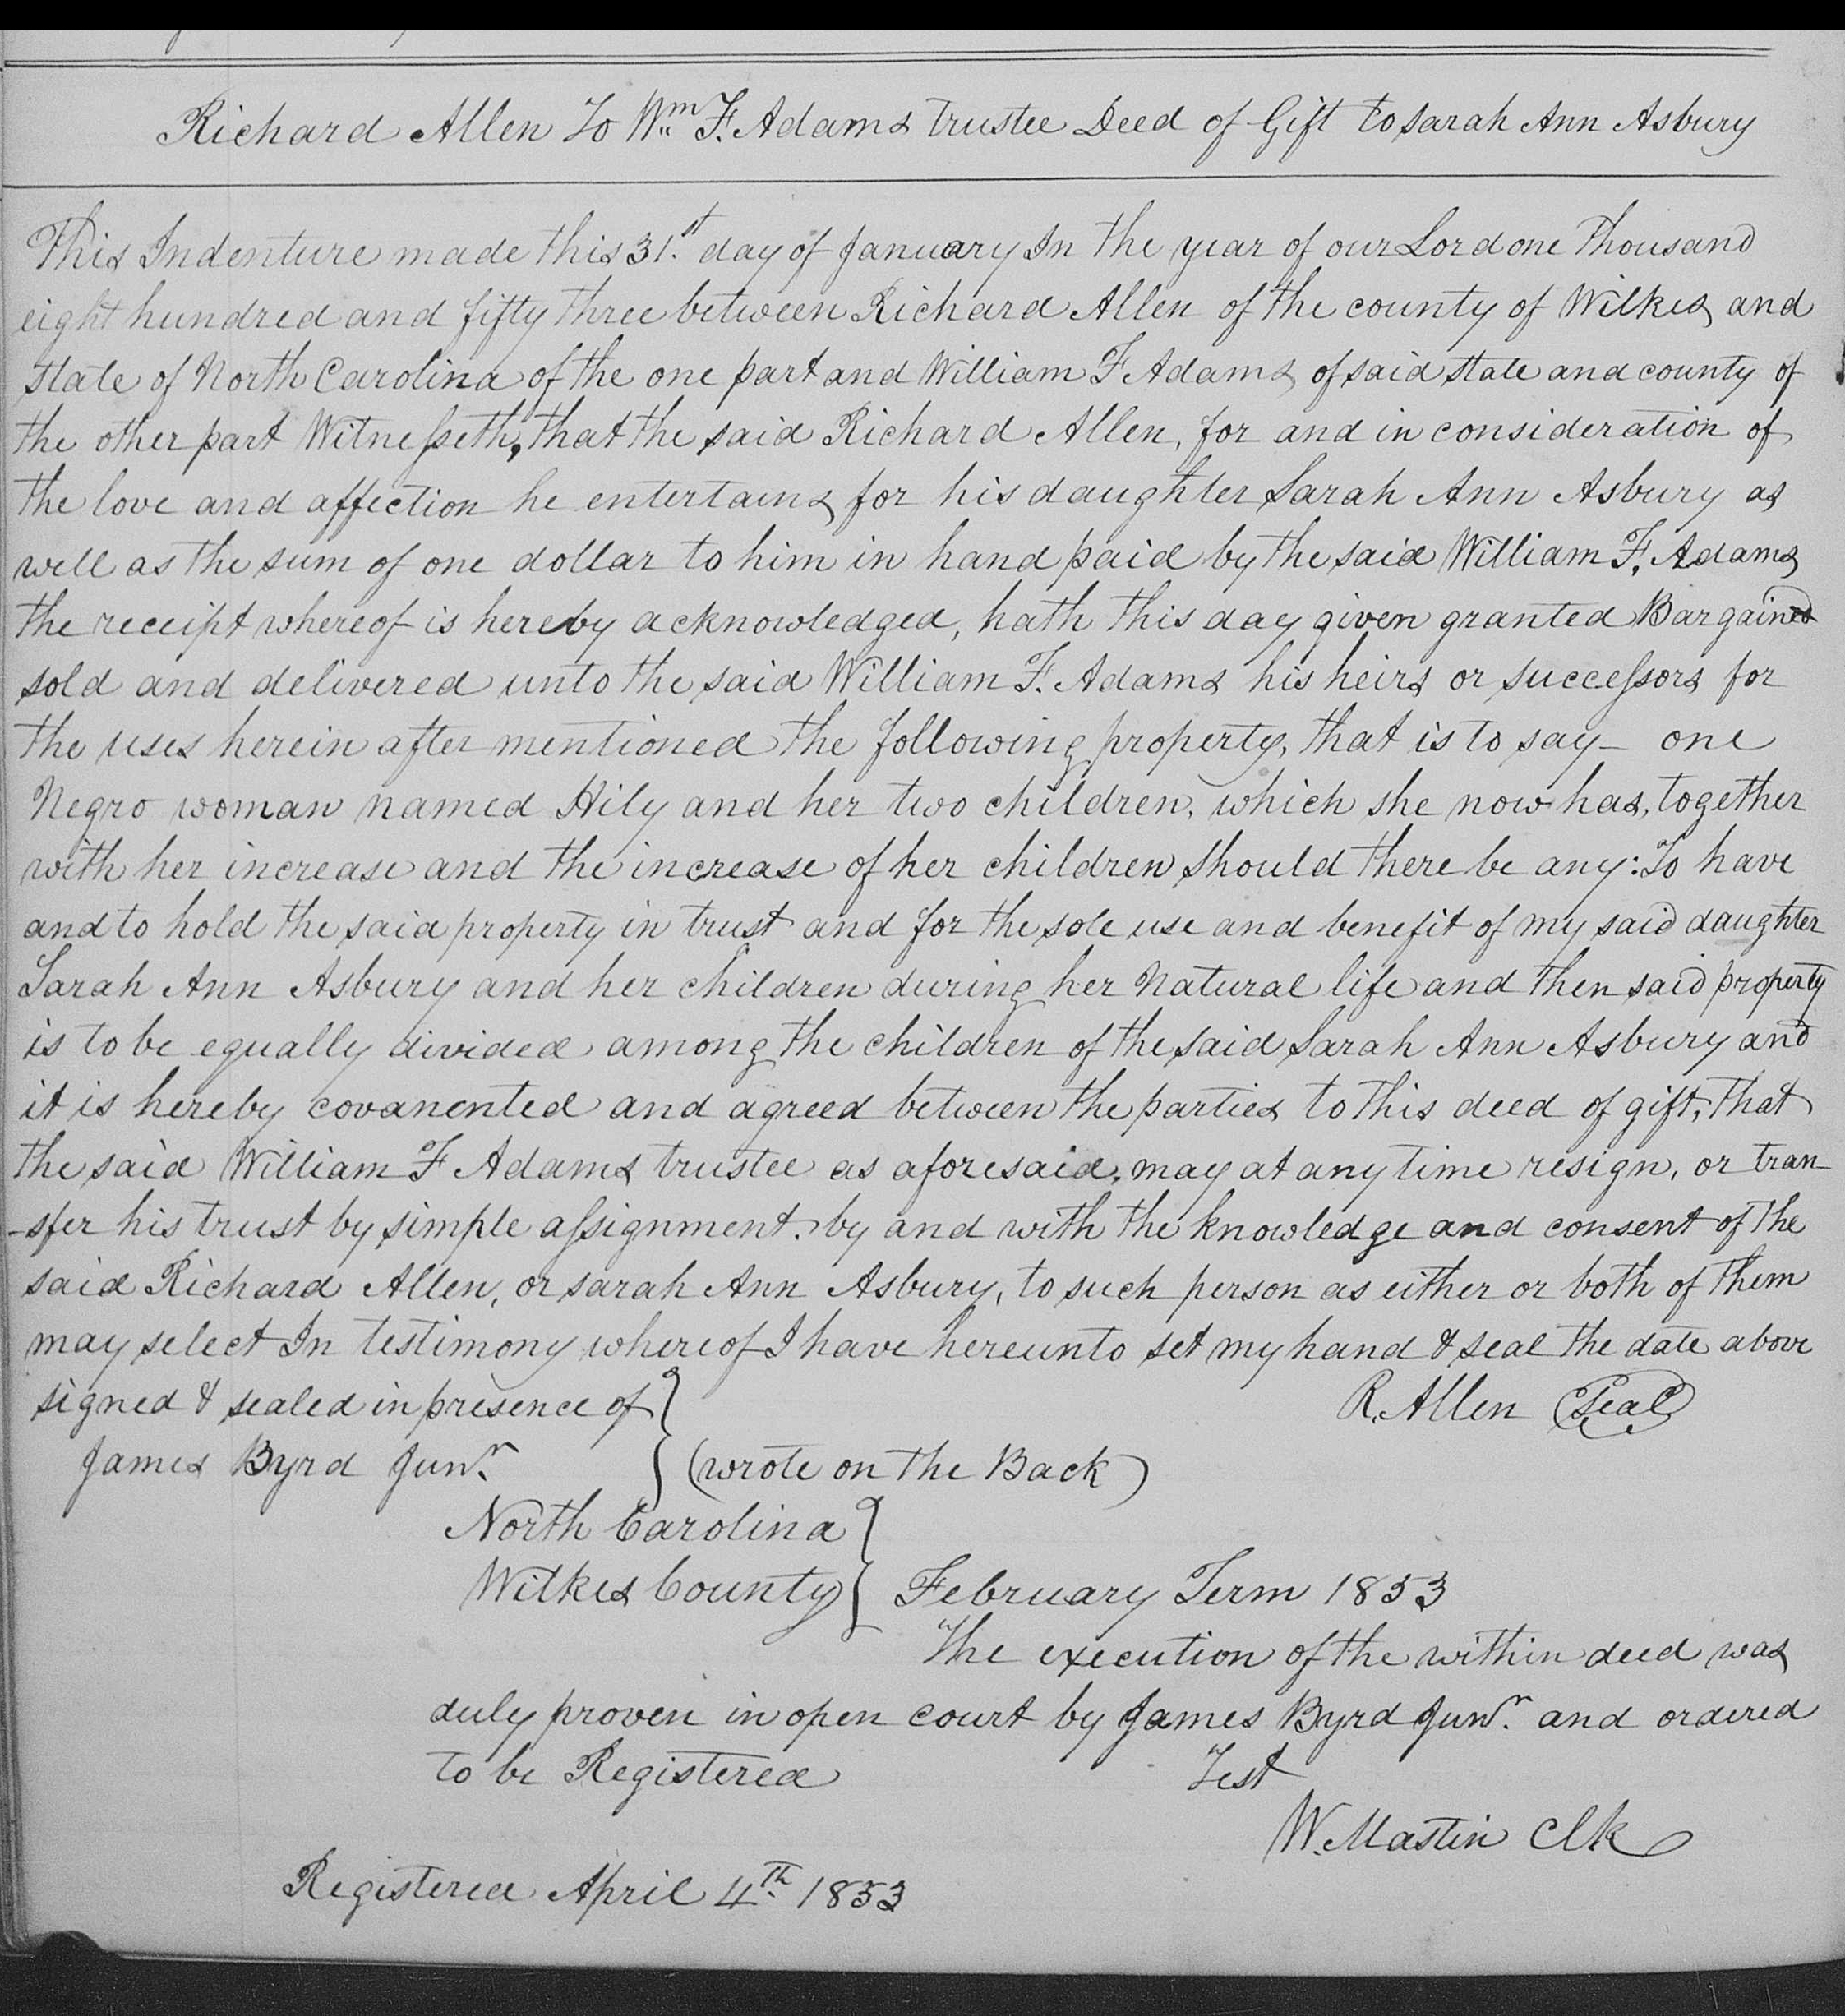 Richard Allen To Wm F. Adams Trustee Deed of Gift to Sarah Ann Asbury
This Indenture made this 31st day of January In the year of our Lord one Thousand
eight hundred and fifty three between Richard Allen of the county of Wilkes and
state of North Carolina of the one part and William F Adams of said state and county of
the other part Witnesseth, that the said Richard Allen, for and in consideration of
the love and affection he entertains for his daughter Sarah Ann Asbury as
well as the sum of one dollar to him in hand paid by the said William F. Adams
the receipt whereof is hereby acknowledged, hath this day given granted Bargained
sold and delivered unto the said William F. Adams his heirs or successors for
the uses herein after mentioned the following property, that is to say – one
Negro woman named Hily and her two children, which she now has, together
with her increase and the increase of her children should there be any: To have
and to hold the said property in trust and for the sole use and benefit of my said daughter
Sarah Ann Asbury and her children during her Natural life and then said property
is to be equally divided among the children of the said Sarah Ann Asbury and
it is hereby covanented and agreed between the parties to this deed of gift, that
the said William F Adams trustee as aforesaid, may at any time resign, or tran-
-sfer his trust by simple assignment. by and with the knowledge and consent of the
said Richard Allen, or sarah Ann Asbury, to such person as either or both of them
may select In testimony whereof I have hereunto set my hand & seal the date above
signed & sealed in presence of } R. Allen (Seal)
James Byrd Junr. } (wrote on the Back)
North Carolina }
Wilkes County { February Term 1853
The execution of the within deed was
duly proven in open court by James Byrd Junr. and ordered
to be Registered Test
W. Mastin Clk
Registered April 4th 1853